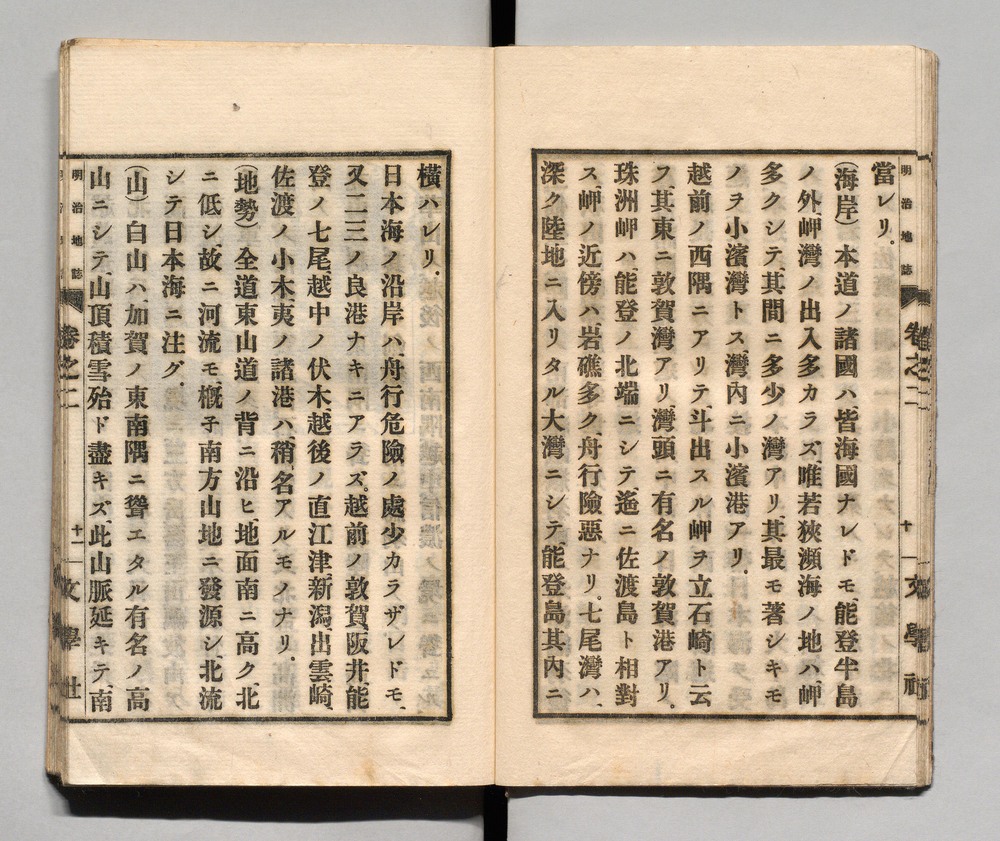 明治地誌
卷之二
十
文學社
當レリ。
(海岸)本道ノ諸國ハ、皆海國ナレドモ、能登半島
ノ外、岬灣ノ出入多カラズ、唯若狹瀕海ノ地ハ、岬
多クシテ、其間ニ多少ノ灣アリ、其最モ著シキモ
ノヲ小濱灣トス、灣内ニ小濱港アリ。
越前ノ西隅ニアリテ斗出スル岬ヲ立石崎ト云
フ、其東ニ敦賀灣アリ、灣頭ニ有名ノ敦賀港アリ。
珠洲岬ハ、能登ノ北端ニシテ、遙ニ佐渡島ト相對
ス、岬ノ近傍ハ、岩礁多ク、舟行險惡ナリ。七尾灣ハ、
深ク陸地ニ入リタル大灣ニシテ、能登島其内ニ
橫ハレリ。
日本海ノ沿岸ハ、舟行危險ノ處少カラザレドモ、
又二三ノ良港ナキニアラズ。越前ノ敦賀、阪井、能
登ノ七尾、越中ノ伏木、越後ノ直江津、新潟、出雲崎、
佐渡ノ小木、夷ノ諸港ハ、稍名アルモノナリ。
(地勢)全道東山道ノ背ニ沿ヒ、地面南ニ高ク、北
ニ低シ、故ニ河流モ、概子南方山地ニ發源シ、北流
シテ日本海ニ注グ。
(山)白山ハ、加賀ノ東南隅ニ聳エタル有名ノ高
山ニシテ、山頂積雪殆ド盡キズ、此山脈延キテ、南
明治地誌
卷之二
十一
文學社